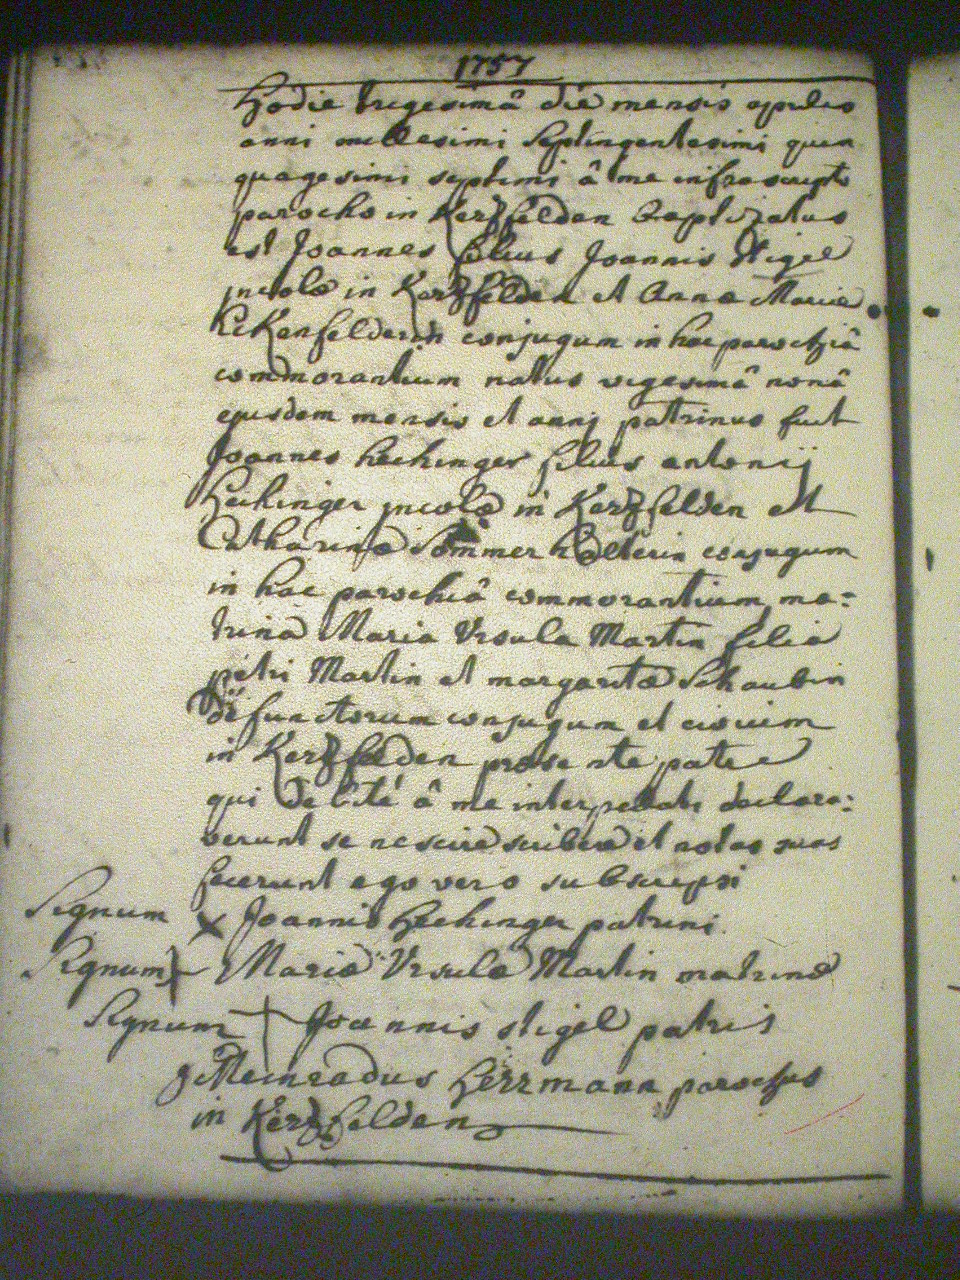 1757
Hodie trigesimâ die mensis aprilis
anni millesimi septingentesimi quin
quagesimi septimi â me infra scripto
parocho in Kerzfelden Baptizatus
est Joannes filius Joannis Stigel
incolæ in Kerzfelden et Annæ Mariæ
conjugum in hac parochiâ
commorantium natus vigesimâ nonâ
ejusdem mensis et anni patrinus fuit
Joannes hechinger filius antonij
Hechinger incolæ in Kerzfelden et
Catharinæ Sommerhalterin conjugum
in hac parochiâ commorantium, ma:
trina Maria Vrsula Martin filia
petri Martin et margaritæ Schaubin
defunctorum conjugum et civium
in Kerzfelden præsente patre
qui debité â me interpellati declara:
verunt se nescire scribere et notas suas
fecerunt ego vero subscripsi
Signum x Joannis Hechinger patrini.
Signum Mariæ Vrsulæ Martin matrinæ
Signum + Joannis stigel patris
Meinradus Herrmann parochus
in Kerzfelden